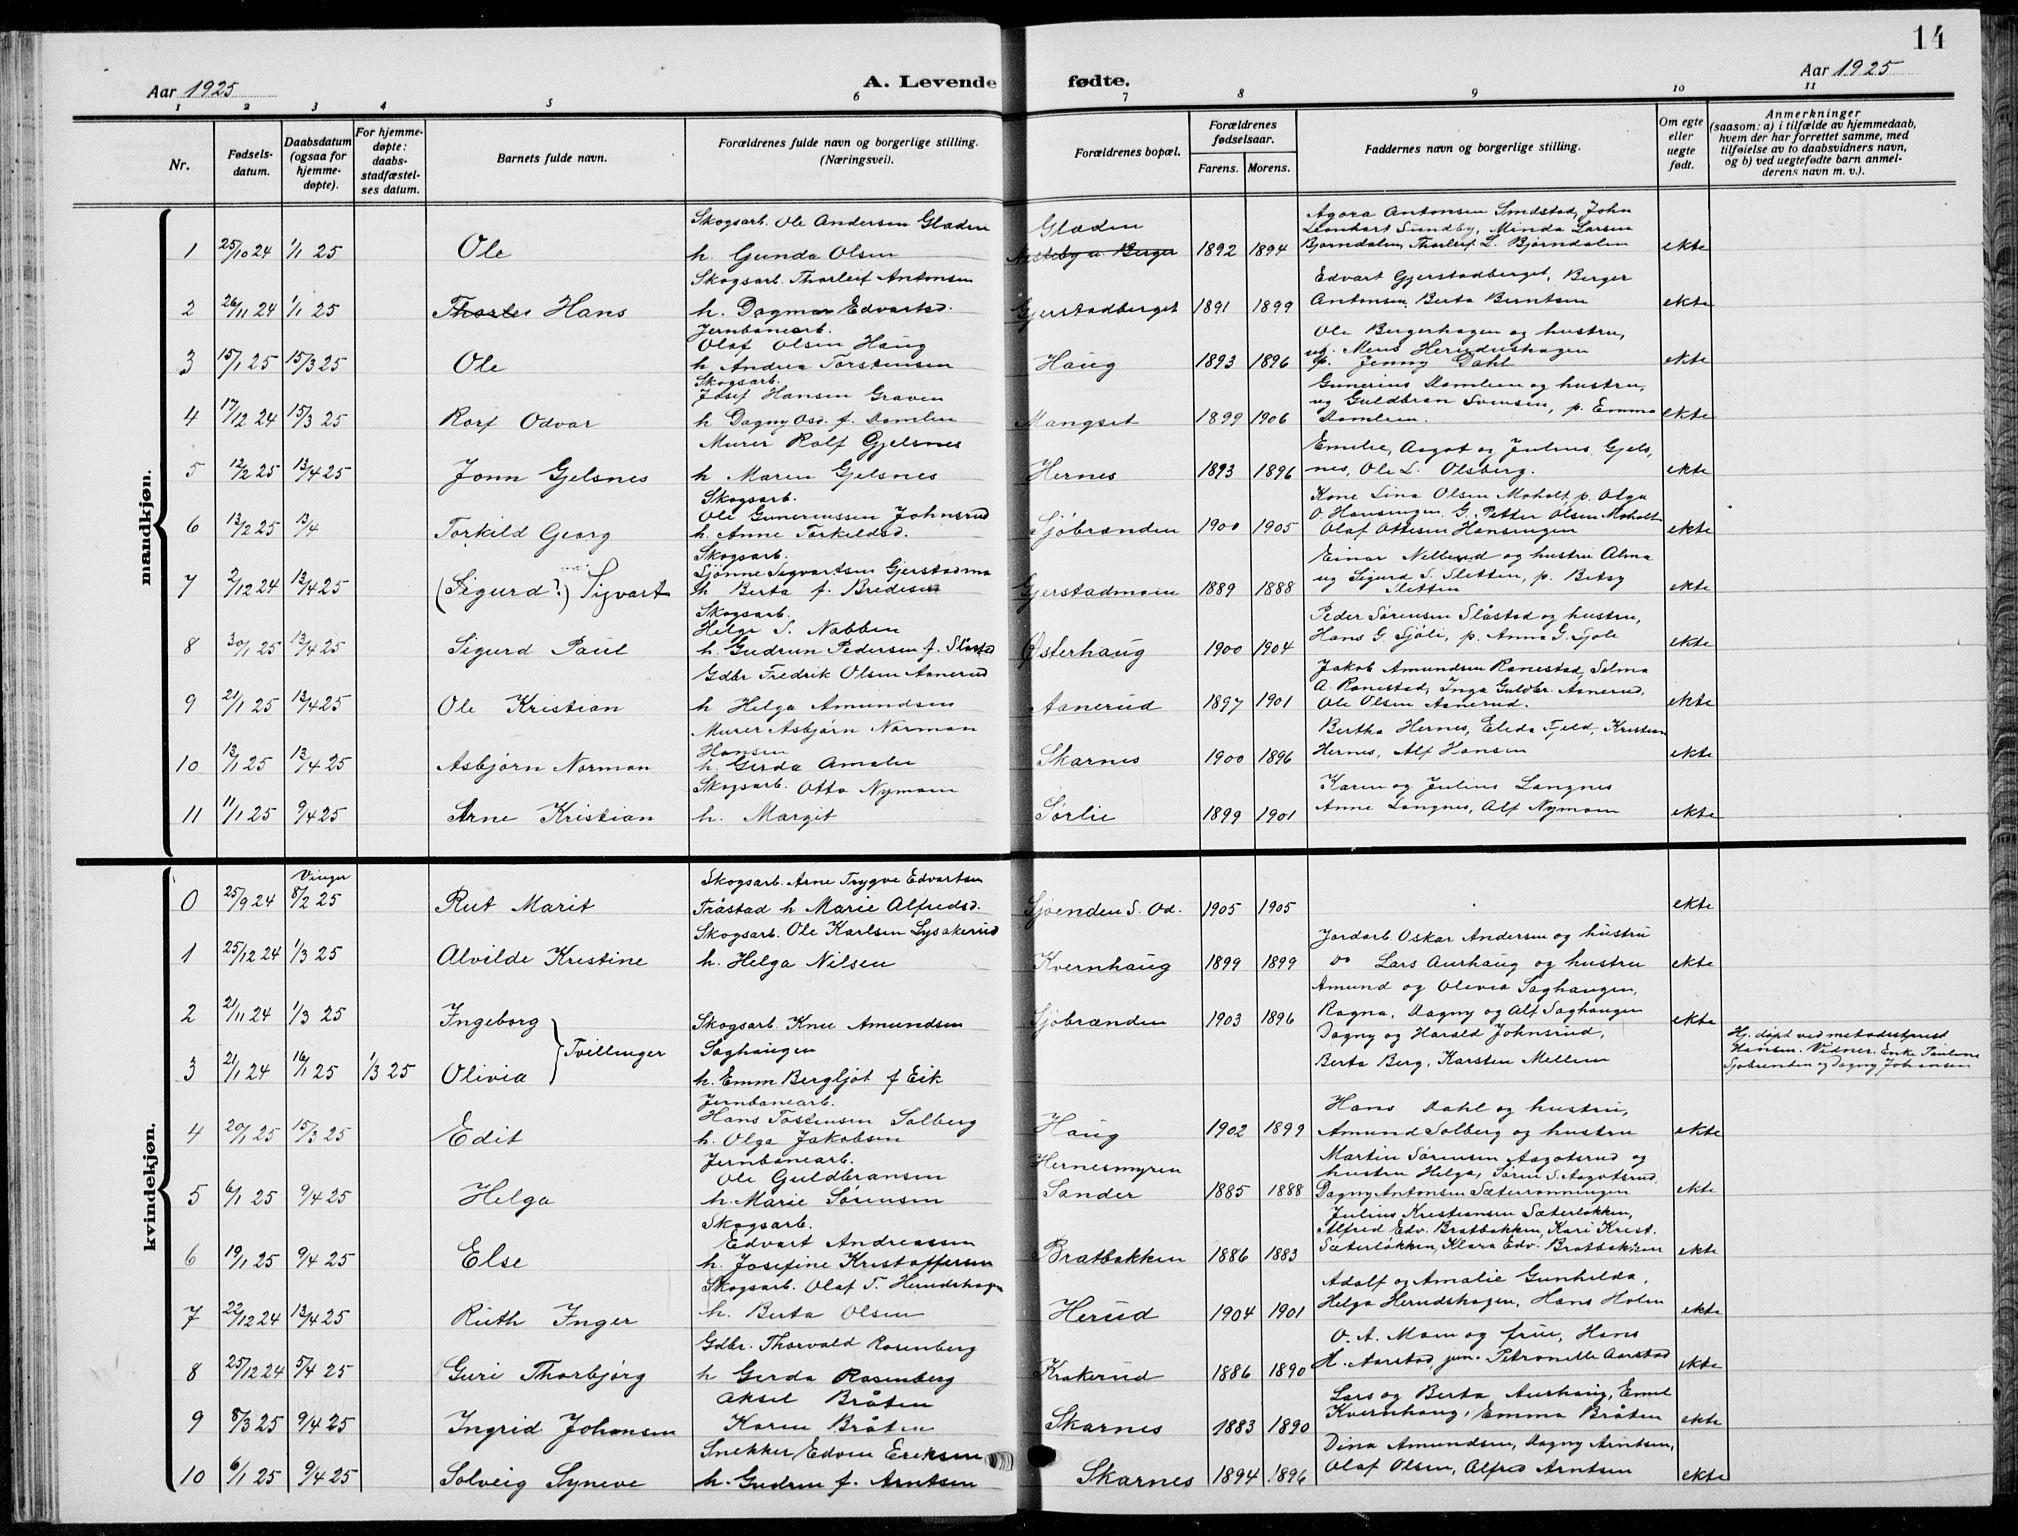 14
Aar 1925
A. Levende fødte.
Aar 1925
1 2 3 4 5 6 7 8 9 10 11
Nr.
Fødsels-
datum.
Daabsdatum
(ogsaa for
hjemme-
døpte).
For hjemme-
døpte:
daabs-
stadfæstel-
ses datum.
Barnets fulde navn.
Forældrenes fulde navn og borgerlige stilling.
(Næringsvei).
Forældrenes bopæl.
Forældrenes
fødselsaar.
Farens. Morens.
Faddernes navn og borgerlige stilling.
Om egte
eller
uegte
født.
Anmerkninger
(saasom: a) i tilfælde av hjemmedaab,
hvem der har forrettet samme, med
tilføielse av to daabsvidners navn,
og b) ved uegtefødte barn anmel-
derens navn m. v.).
mandkjøn.
Skogsarb. Ole Andersen Gladen Gladen Agora Antonsen Smdstad, John
Leonhart Sundby, Minda Larsen
1 25/10 24 1/1 25 Ole h. Gunda Olsen Berger 1892 1894 Bjørndalen, Thorleif L. Bjørndalen ekte
Skogsarb. Thorleif Antonsen Edvart Gjerstadberget, Berger
2 26/11 24 1/1 25 Hans h. Dagmar Edvartsd. Gjerstadberget 1891 1899 Antonsen, Berta Berntsen ekte
Jernbanearb. Ole Bergerhagen og hustru,
Olaf Olsen Haug ug. Mens Herudshagen
3 15/1 25 15/3 25 Ole h Andrea Torstensen Haug 1893 1896 p. Jenny Dahl ekte
Skogsarb. Gunerius Damlien og hustru,
Josef Hansen Graven ug Guldbran Svensen, p. Emma
4 17/12 24 15/3 25 Rolf Odvar h Dagny Osd. f. Damlien Mangset 1899 1906 Damlien. ekte
Murer Rolf Gjelsnes Emelie, Aagot og Julius Gjels,
5 12/2 25 13/4 25 Jonn Gjelsnes h Maren Gjelsnes Hernes 1893 1896 nes, Ole L. Olsberg. ekte
Skogsarb. Kone Lina Olsen Moholt, p. Olga
Ole Gunerussen Johnsrud O. Hansingen, G. Petter Olsen Moholt
6 13/2 25 13/4 Torkild Georg h. Anne Torkildsd. Sjøbrænden 1900 1905 Olaf Ottesen Hansingen ekte
Skogsarb. Einar Nellerud og hustru Alma
Sjønne Sigvartsen Gjerstadmo ug Sigurd S. Sletten, p. Betsy
7 2/12 24 13/4 25 (Sigurd?) Sigvart h Berta f. Bredesen Gjerstadmoen 1889 1888 Sletten ekte
Skogsarb. Peder Sørensen Slåstad og hustru,
Helge S. Nabben Hans G. Sjöli, p. Anna G. Sjøle
8 30/1 25 13/4 25 Sigurd Paul h. Gudrun Pedersen f. Slåstad Østerhaug 1900 1904 ekte
Gdbr Fredrik Olsen Aanerud Jakob Amundsen Ranestad, Selma
A. Ranestad, Inga Guldbr. Aanerud,
9 21/1 25 13/4 25 Ole Kristian h Helga Amundsen Aanerud 1897 1901 Ole Olsen Aanerud. ekte
Murer Asbjørn Norman Bertha Hernes, Elida Fjeld, Kristian
Hansen Hernes, Alf Hansen
10 13/1 25 13/4 25 Asbjørn Norman h. Gerda Amalie Skarnes 1900 1896 ekte
Skogsarb. Otto Nymoen Karen og Julius Langnes
11 11/1 25 9/4 25 Arne Kristian h. Margit Sørlie 1899 1901 Anne Langnes, Alf Nymoen ekte
kvindekjøn.
Vinger Skogsarb. Arne Trygve Edvartsen
0 25/9 24 8/2 25 Rut Marit Tråstad h Marie Alfredsd. Sjøenden S. Od. 1905 1905 ekte
Skogsarb. Ole Karlsen Lysakerud Jordarb. Oskar Andersen og hustru
1 25/12 24 1/3 25 Alvilde Kristine h. Helga Nilsen Kvernhaug 1899 1899 Do Lars Aurhaug og hustru ekte
Amund og Olivia Saghaugen,
2 21/11 24 1/3 25 Ingeborg Skogsarb. Knu Amundsen Sjøbrænden 1903 1896 Ragna, Dagny og Alf Saghaugen ekte
Tvillinger Saghaugen Dagny og Harald Johnsrud, Hj. døpt ved metodistprest
Hansen. Vidner: Enke Pauline
3 21/1 24 16/1 25 1/3 25 Olivia h. Emm Bergljot f Eik Berta Berg, Karsten Mellem Sjøbrenden og Dagny Johansen
Jernbanearb. Hans Dahl og hustru,
Hans Tostensen Solberg
4 20/1 25 15/3 25 Edit h. Olga Jakobsen Haug 1902 1899 Amund Solberg og hustru ekte
Jernbanearb. Hernesmyren Martin Sørensen Aagotsrud og
Ole Guldbransen hustru Helga, Søren S. Aagotsrud,
5 6/1 25 9/4 25 Helga h. Marie Sørensen Sander 1885 1888 Dagny Antonsen Sæterrønningen ekte
Skogsarb. Julius Kristiansen Sæterløkken,
Edvart Andreassen Alfred Edv. Bratbakken, Kari Krist.
6 19/1 25 9/4 25 Else h. Josefine Kristoffersen Bratbakken 1886 1883 Sæterløkken, Klara Edv. Bratbakken ekte
Skogsarb. Olaf T. Herudshagen Adolf og Amalie Gunhilda,
7 22/12 24 13/4 25 Ruth Inger h. Berta Olsen Herud 1904 1901 Helga Herudshagen, Hans Holen ekte
Gdbr. Thorvald Rosenberg O. A. Moen og frue, Hans
8 25/12 24 5/4 25 Guri Thorbjørg h Gerda Rosenberg Krakerud 1886 1890 H. Aarstad jun. Petronelle Aarstad ekte
Aksel Bråten Lars og Berta Aurhaug, Emil
9 8/3 25 9/4 25 Ingrid Johansen Karen Bråten Skarnes 1883 1890 Kvernhaug, Emma Bråten ekte
Snekker Edvin Eriksen Dina Amundsen, Dagny Arntsen,
10 6/1 25 9/4 25 Solveig Synøve h. Gudrun f. Arntsen Skarnes 1894 1896 Olaf Olsen, Alfred Arntsen ekte